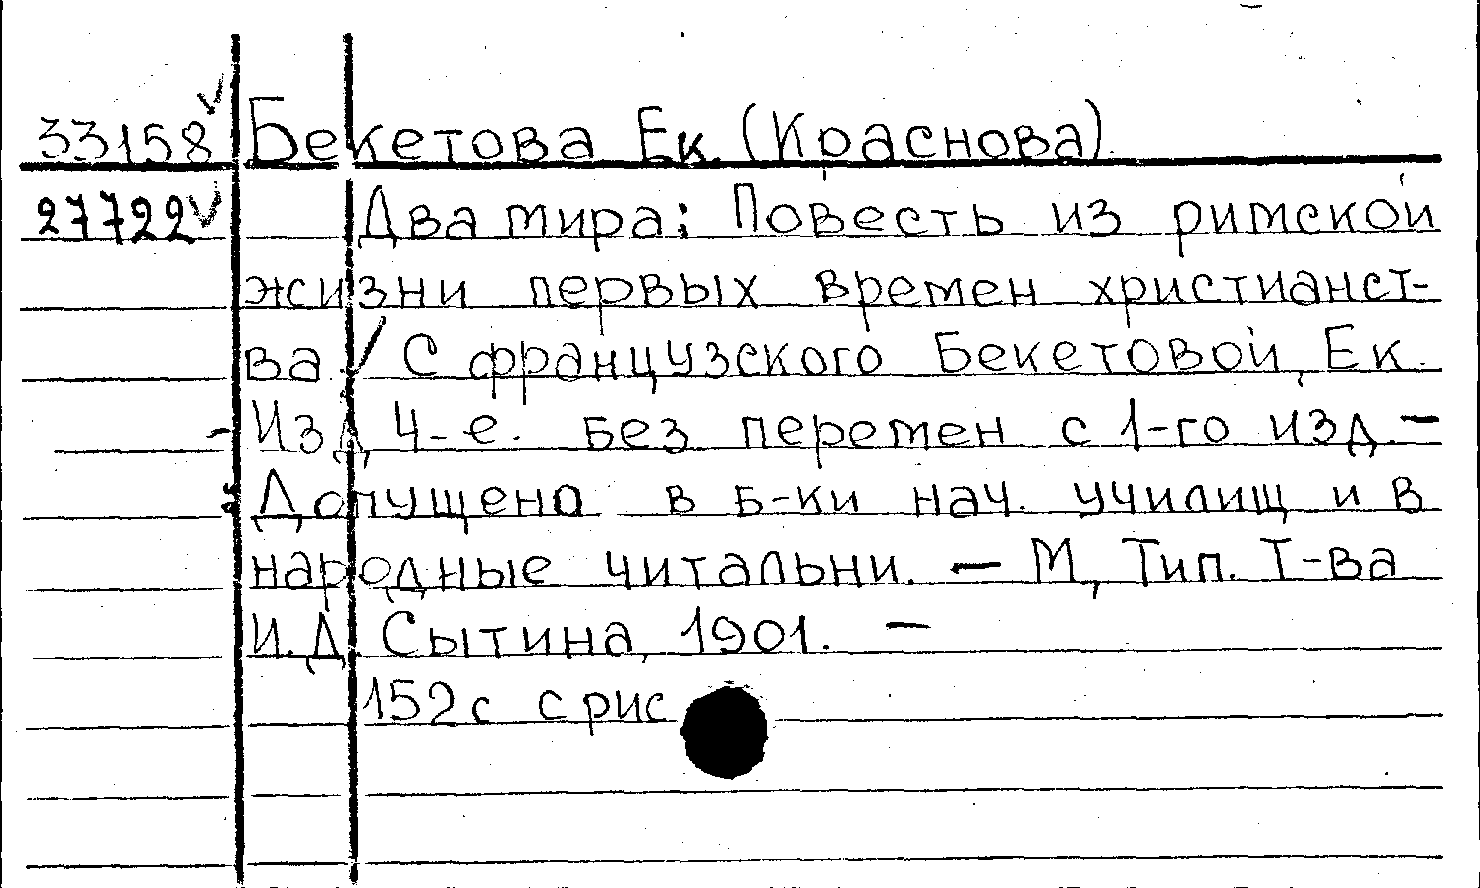 33158 Бекетова Ек. (Краснова)
27722 Два мира: Повесть из римской
жизни первых времен христианст-
ва / С французского Бекетовой, Ек.
- Изд 4-е. без перемен с 1-го изд. -
Допущено в б-ки нач. училищ и в
народные читальни. - М, Тип. Т-ва
И.Д. Сытина, 1901. -
152 с с рис